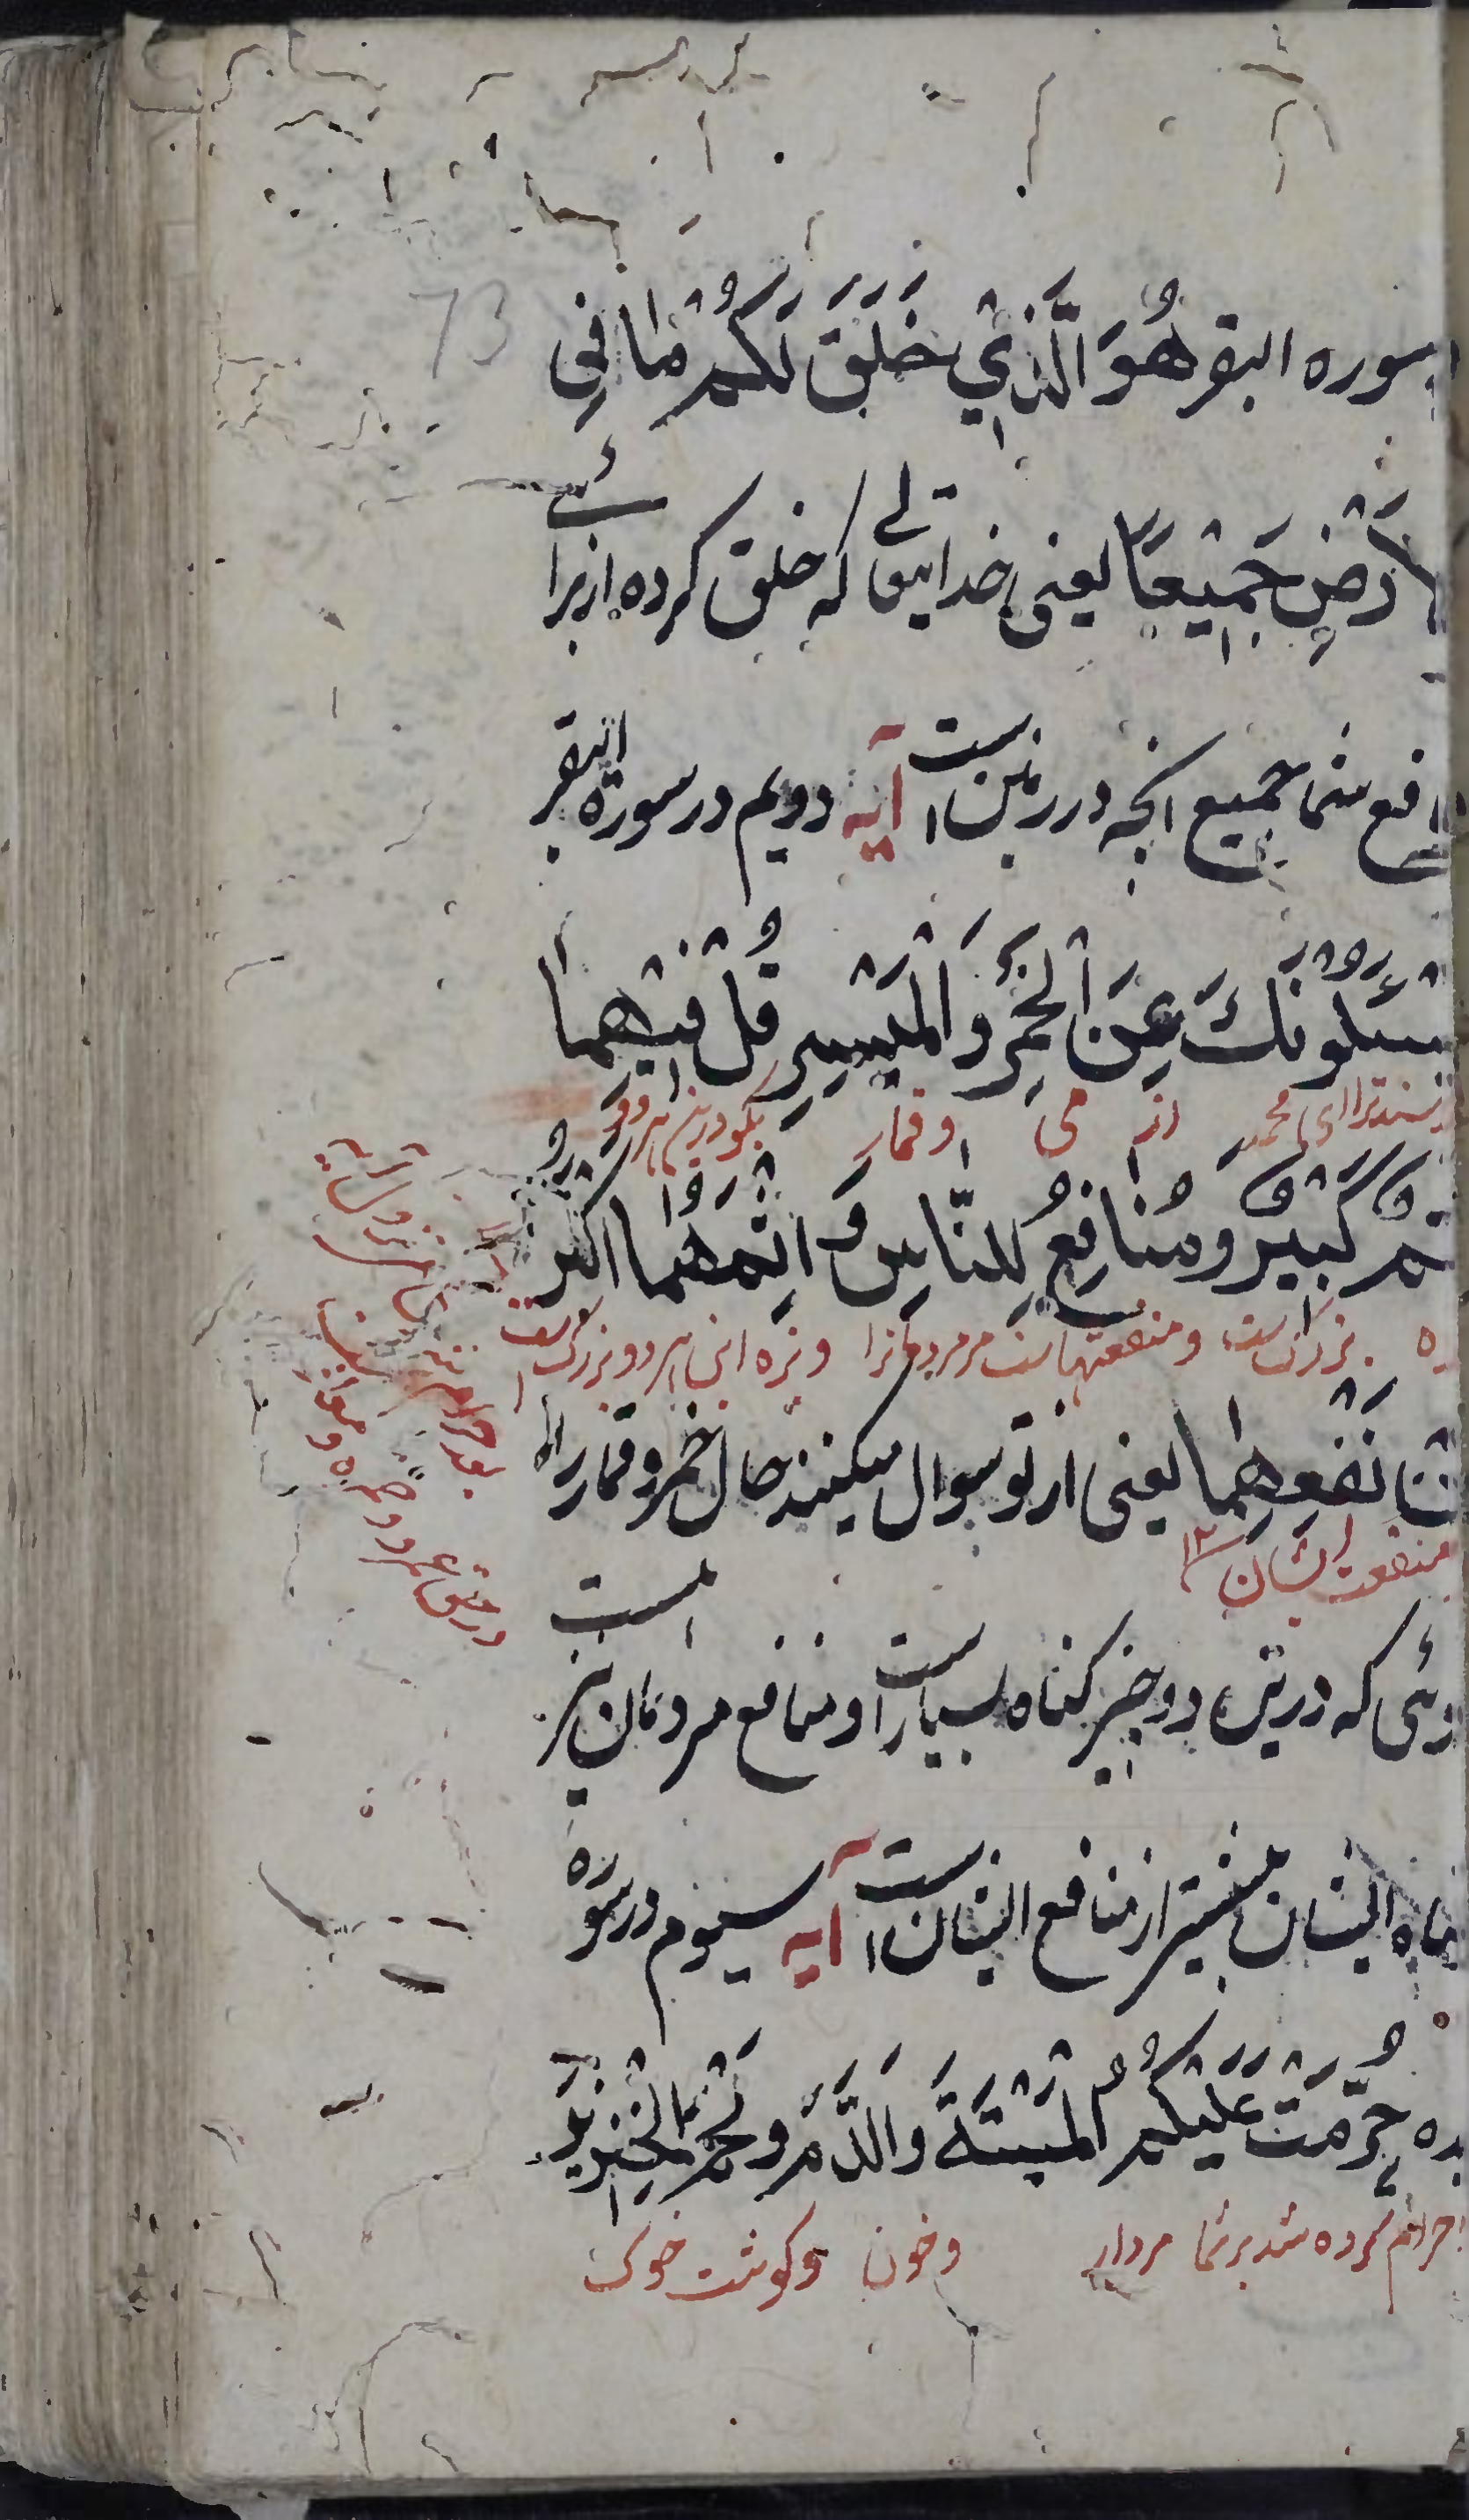 سوره البقر هُوَ الَّذِي خَلَقَ لَكُمْ مَا فِي
الارض جَمِيعًا یعنی خدایتعالے که خلق کرده از برائے
نافع شما جمیع انچه در زمین است آیه دویم در سورة البقر
یسئلونك عَنِ الْخَمْرِ وَالْمَيْسِرِ قُلْ فِيْهِمَا
ترا ای محمد از می و قمار بگو درین هر دو
اثم كَبِيْرٌ وَمَنَافِعُ لِلنَّاسِ وَاِثْمُهُمَا اَكْبَرُ
بزرگ است و منفعتهاست مر مردمانرا و بزه این هر دو بزرگ
من نَفْعِهِمَا یعنی از تو سوال میکنند حال خمر و قمار را
منفعت ایشان ۱۲
که درین دو چیز گناه بسیار است و منافع مردمان نیز است
گناه ایشان بیشتر از منافع ایشان است آیه سیوم در سوره
حُرِّمَتْ عَلَيْكُمُ الْمَيْتَةُ وَالدَّمُ وَلَحْمُ الْخِنْزِيْرِ
حرام کرده شد بر شما مردار و خون و کوشت خوک
73
در حق عمرو و حمزه و معاذ